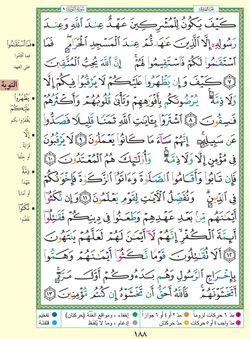 كَيْفَ يَكُونُ لِلْمُشْرِكِينَ عَهْدٌ عِندَ ٱللَّهِ وَعِندَ
رَسُولِهِۦٓ إِلَّا ٱلَّذِينَ عَٰهَدتُّمْ عِندَ ٱلْمَسْجِدِ ٱلْحَرَامِ ۖ فَمَا
ٱسْتَقَٰمُوا۟ لَكُمْ فَٱسْتَقِيمُوا۟ لَهُمْ ۚ إِنَّ ٱللَّهَ يُحِبُّ ٱلْمُتَّقِينَ
٧ كَيْفَ وَإِن يَظْهَرُوا۟ عَلَيْكُمْ لَا يَرْقُبُوا۟ فِيكُمْ إِلًّا
وَلَا ذِمَّةً ۚ يُرْضُونَكُم بِأَفْوَٰهِهِمْ وَتَأْبَىٰ قُلُوبُهُمْ وَأَكْثَرُهُمْ
فَٰسِقُونَ ٨ ٱشْتَرَوْا۟ بِـَٔايَٰتِ ٱللَّهِ ثَمَنًا قَلِيلًا فَصَدُّوا۟
عَن سَبِيلِهِۦٓ ۚ إِنَّهُمْ سَآءَ مَا كَانُوا۟ يَعْمَلُونَ ٩ لَا يَرْقُبُونَ
فِى مُؤْمِنٍ إِلًّا وَلَا ذِمَّةً ۚ وَأُو۟لَٰٓئِكَ هُمُ ٱلْمُعْتَدُونَ ١٠
فَإِن تَابُوا۟ وَأَقَامُوا۟ ٱلصَّلَوٰةَ وَءَاتَوُا۟ ٱلزَّكَوٰةَ فَإِخْوَٰنُكُمْ
فِى ٱلدِّينِ ۗ وَنُفَصِّلُ ٱلْـَٔايَٰتِ لِقَوْمٍ يَعْلَمُونَ ١١ وَإِن نَّكَثُوٓا۟
أَيْمَٰنَهُم مِّنۢ بَعْدِ عَهْدِهِمْ وَطَعَنُوا۟ فِى دِينِكُمْ فَقَٰتِلُوٓا۟
أَئِمَّةَ ٱلْكُفْرِ ۙ إِنَّهُمْ لَآ أَيْمَٰنَ لَهُمْ لَعَلَّهُمْ يَنتَهُونَ
١٢ أَلَا تُقَٰتِلُونَ قَوْمًا نَّكَثُوٓا۟ أَيْمَٰنَهُمْ وَهَمُّوا۟
بِإِخْرَاجِ ٱلرَّسُولِ وَهُم بَدَءُوكُمْ أَوَّلَ مَرَّةٍ ۚ
أَتَخْشَوْنَهُمْ ۚ فَٱللَّهُ أَحَقُّ أَن تَخْشَوْهُ إِن كُنتُم مُّؤْمِنِينَ ١٣
التوبة
١٨٨